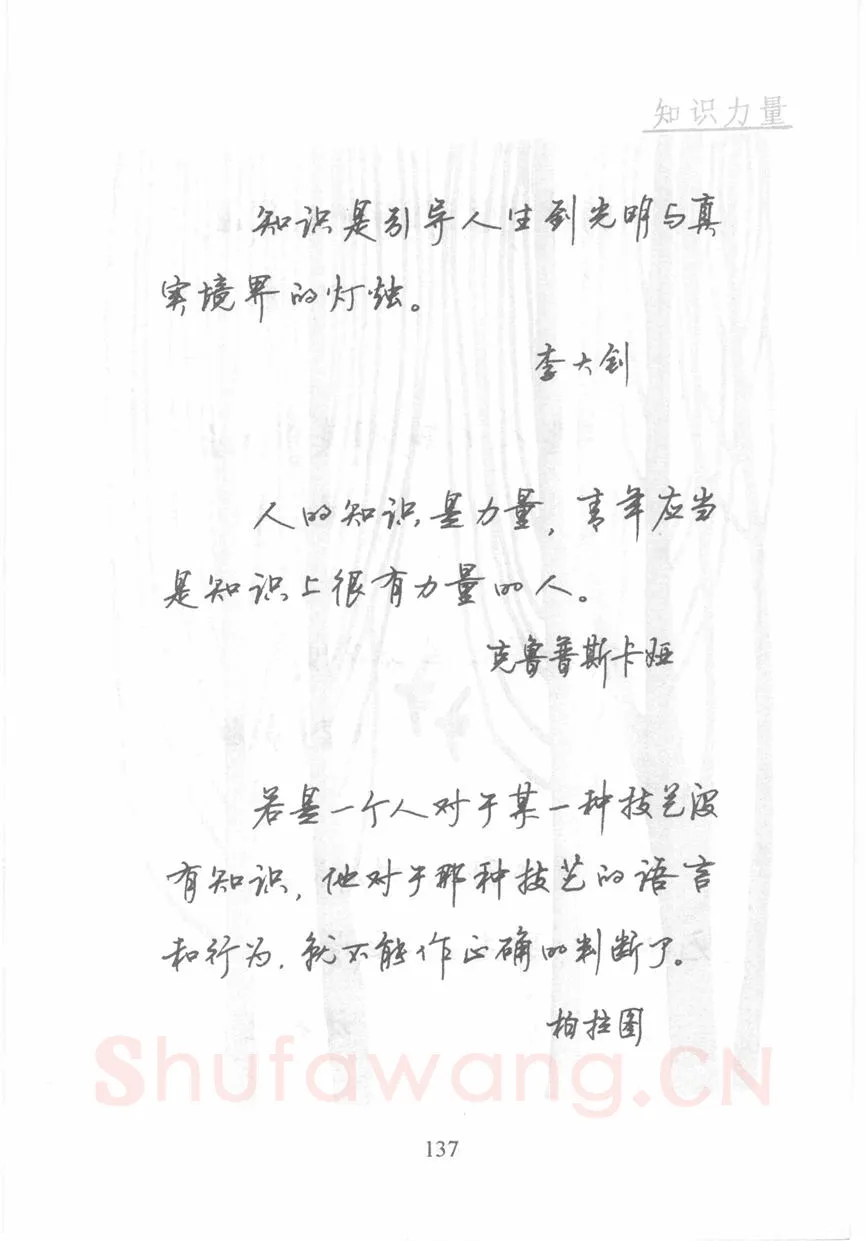 知识力量
知识是引导人生到光明与真
实境界的灯烛。
李大钊
人的知识是力量，青年应当
是知识上很有力量的人。
克鲁普斯卡娅
若是一个人对于某一种技艺没
有知识，他对于那种技艺的语言
和行为，就不能作正确的判断了。
柏拉图
Shufawang.CN
137